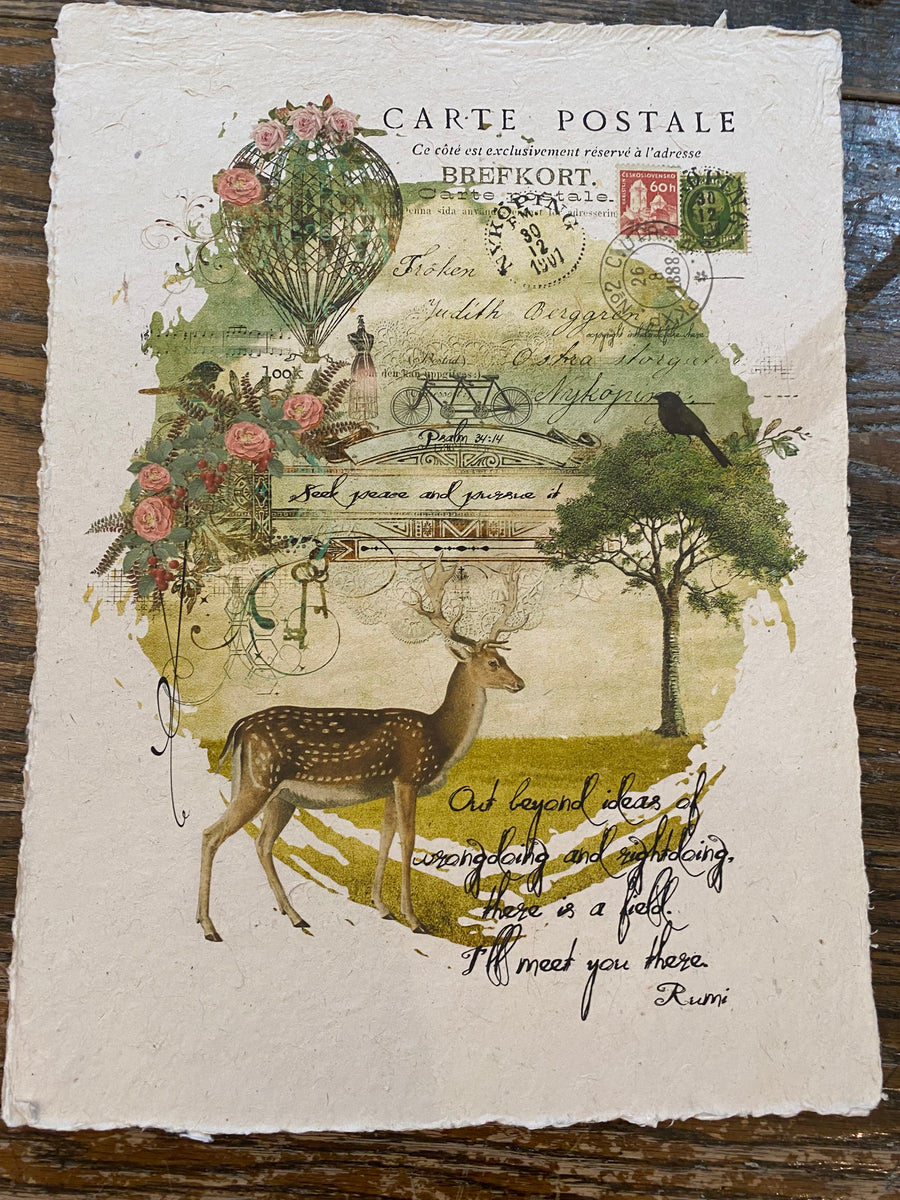 CARTE POSTALE
Ce côté est exclusivement réservé à l'adresse
BREFKORT.
Carte postale.
NYKÖPING
30
12
1901
ČESKOSLOVENSKO
60h
30
12
Fröken
No2
26
8
1888
Judith Berggren
look
Nyköping
Psalm 34:14
Seek peace and pursue it
Out beyond ideas of
wrongdoing and rightdoing,
there is a field.
I'll meet you there.
Rumi